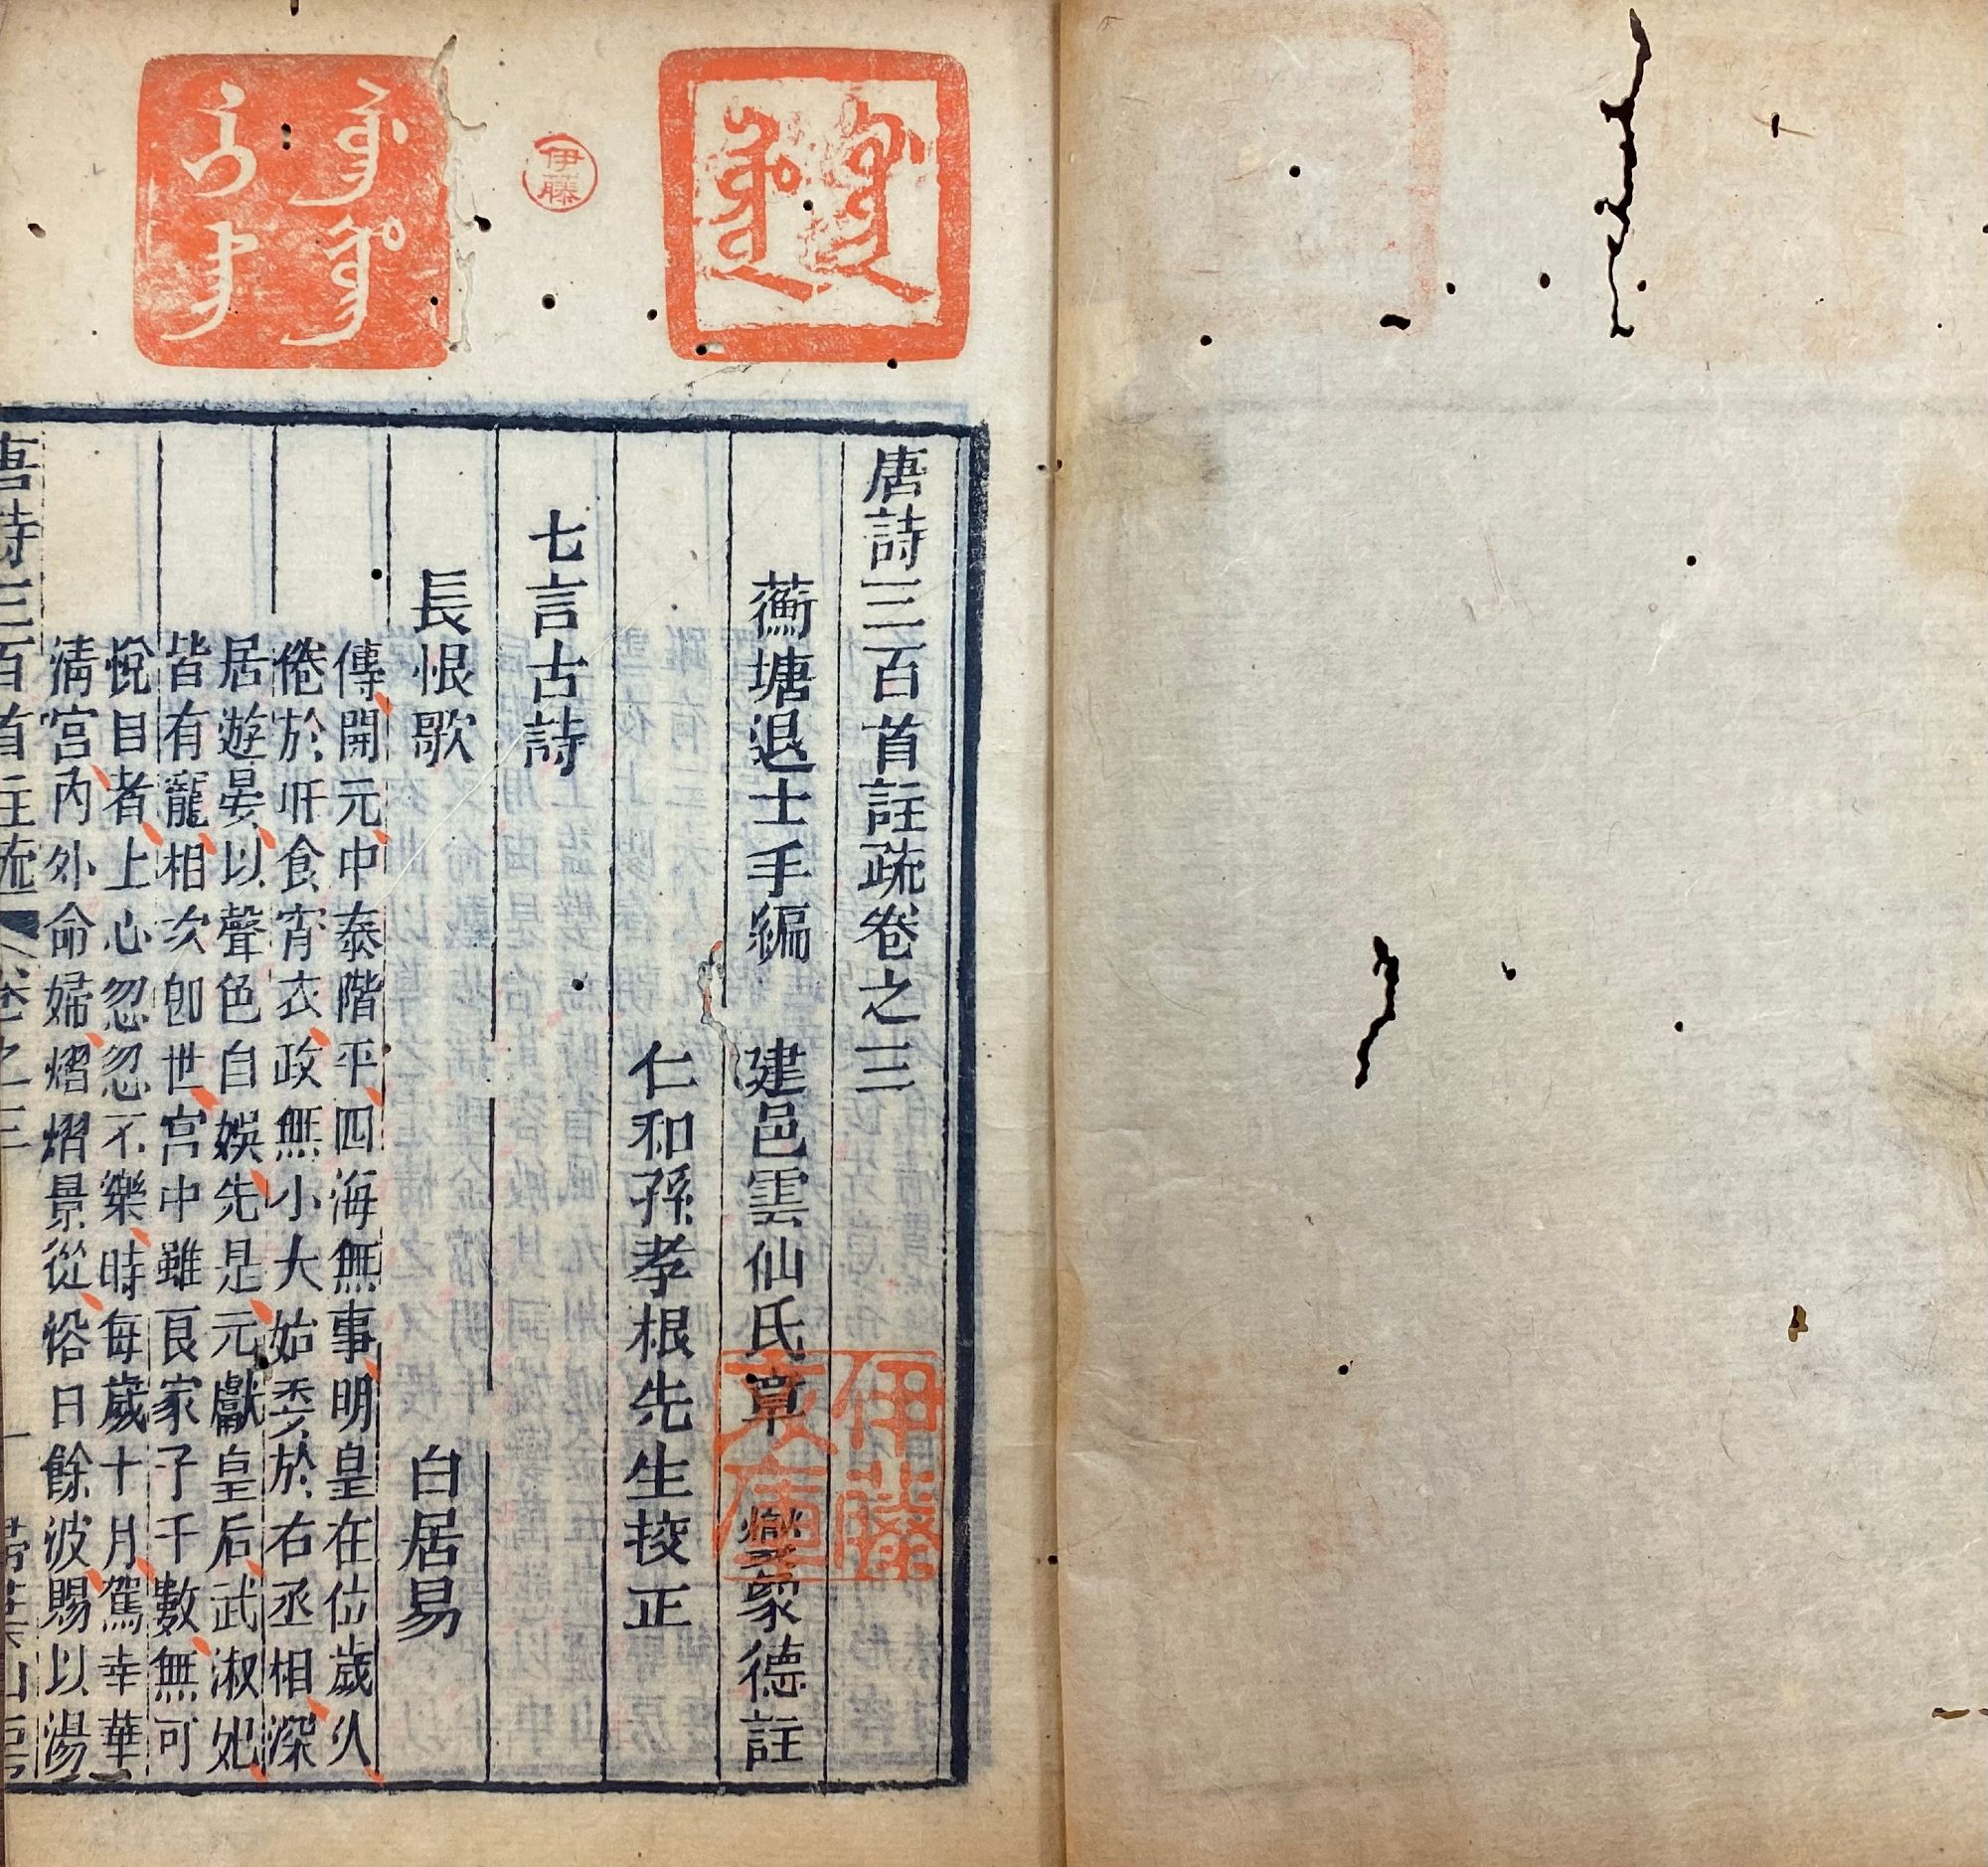 伊藤
唐詩三百首註疏卷之三
蘅塘退士手編 建邑雲仙氏章燮象德註
仁和孫孝根先生挍正
七言古詩
長恨歌 白居易
傳開元中泰階平四海無事明皇在位歲久
倦於旰食宵衣政無小大始委於右丞相深
居遊宴以聲色自娛先是元獻皇后武淑妃
皆有寵相次卽世宮中雖良家子千數無可
悅目者上心忽忽不樂時每歲十月駕幸華
淸宮內外命婦熠熠景從浴日餘波賜以湯
唐詩三百首註疏 卷之三 一
伊藤文庫